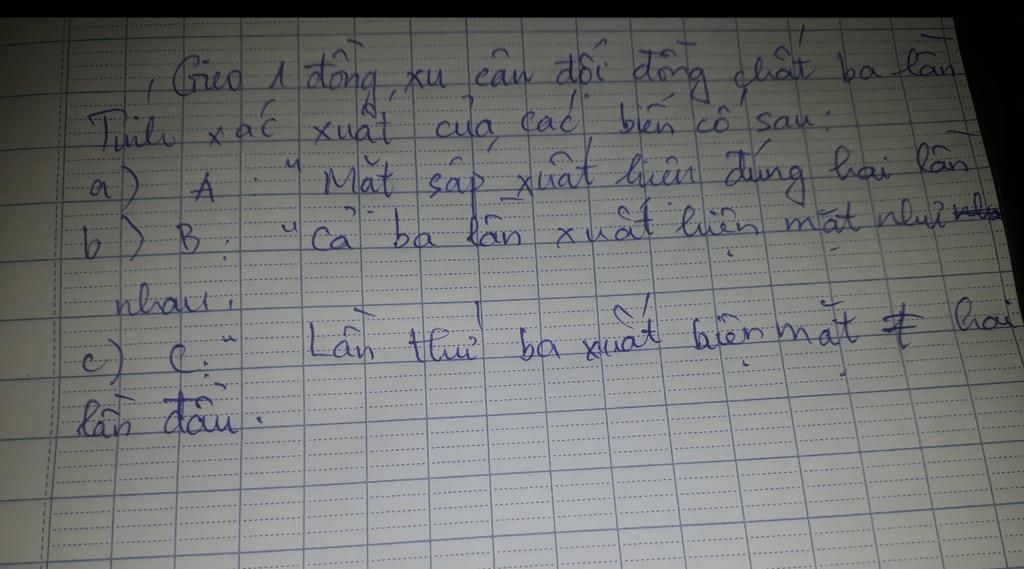 Gieo 1 đồng xu cân đối đồng chất ba lần
Tính xác xuất của các biến cố sau:
a) A: "Mặt sấp xuất hiện đúng hai lần
b) B: "Cả ba lần xuất hiện mặt như
nhau.
c) C: " Lần thứ ba xuất hiện mặt ≠ hai
lần đầu.